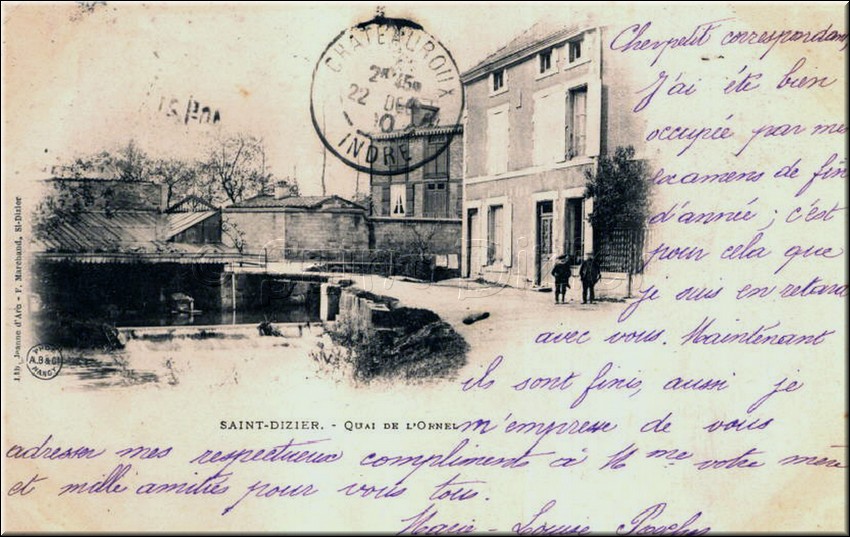 CHATEAUROUX
22 DEC
INDRE
Lith. Jeanne d'Arc - F. Marchand, St-Dizier
A.B & Cie
NANCY
SAINT-DIZIER. - QUAI DE L'ORNEL
Cher petit correspondant
J'ai été bien
occupée par mes
examens de fin
d'année ; c'est
pour cela que
je suis en retard
avec vous. Maintenant
ils sont finis, aussi je
m'empresse de vous
adresser mes respectueux compliments à Mme votre mère
et mille amitiés pour vous tous.
Marie-Louise